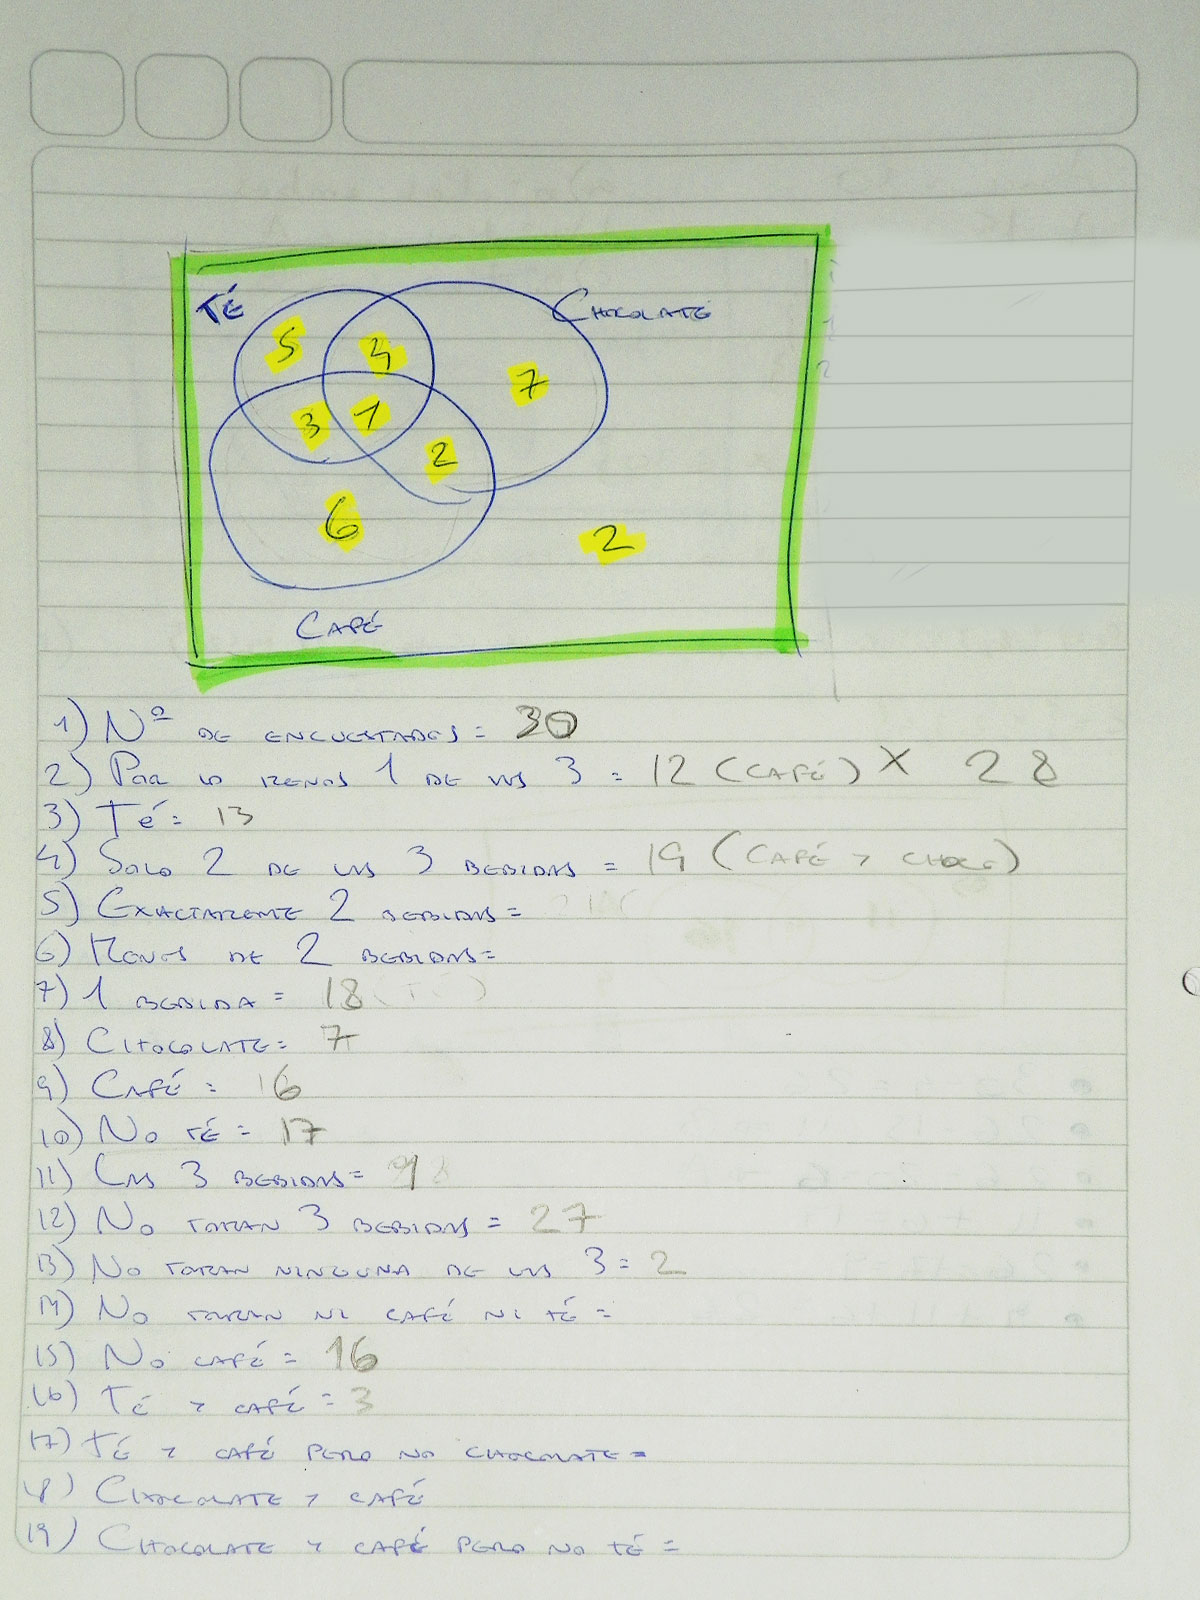 TÉ
CHOCOLATE
5
3
7
3
1
2
6
2
CAFÉ
1) Nº DE ENCUESTADOS = 30
2) POR LO MENOS 1 DE LAS 3 = 12 (CAFÉ) X 28
3) TÉ = 13
4) SOLO 2 DE LAS 3 BEBIDAS = 19 (CAFÉ Y CHOCO)
5) EXACTAMENTE 2 BEBIDAS =
6) MENOS DE 2 BEBIDAS =
7) 1 BEBIDA = 18
8) CHOCOLATE = 7
9) CAFÉ = 16
10) NO TÉ = 17
11) LAS 3 BEBIDAS =
12) NO TOMAN 3 BEBIDAS = 27
13) NO TOMAN NINGUNA DE LAS 3 = 2
14) NO TOMAN NI CAFÉ NI TÉ =
15) NO CAFÉ = 16
16) TÉ Y CAFÉ = 3
17) TÉ Y CAFÉ PERO NO CHOCOLATE =
18) CHOCOLATE Y CAFÉ
19) CHOCOLATE Y CAFÉ PERO NO TÉ =